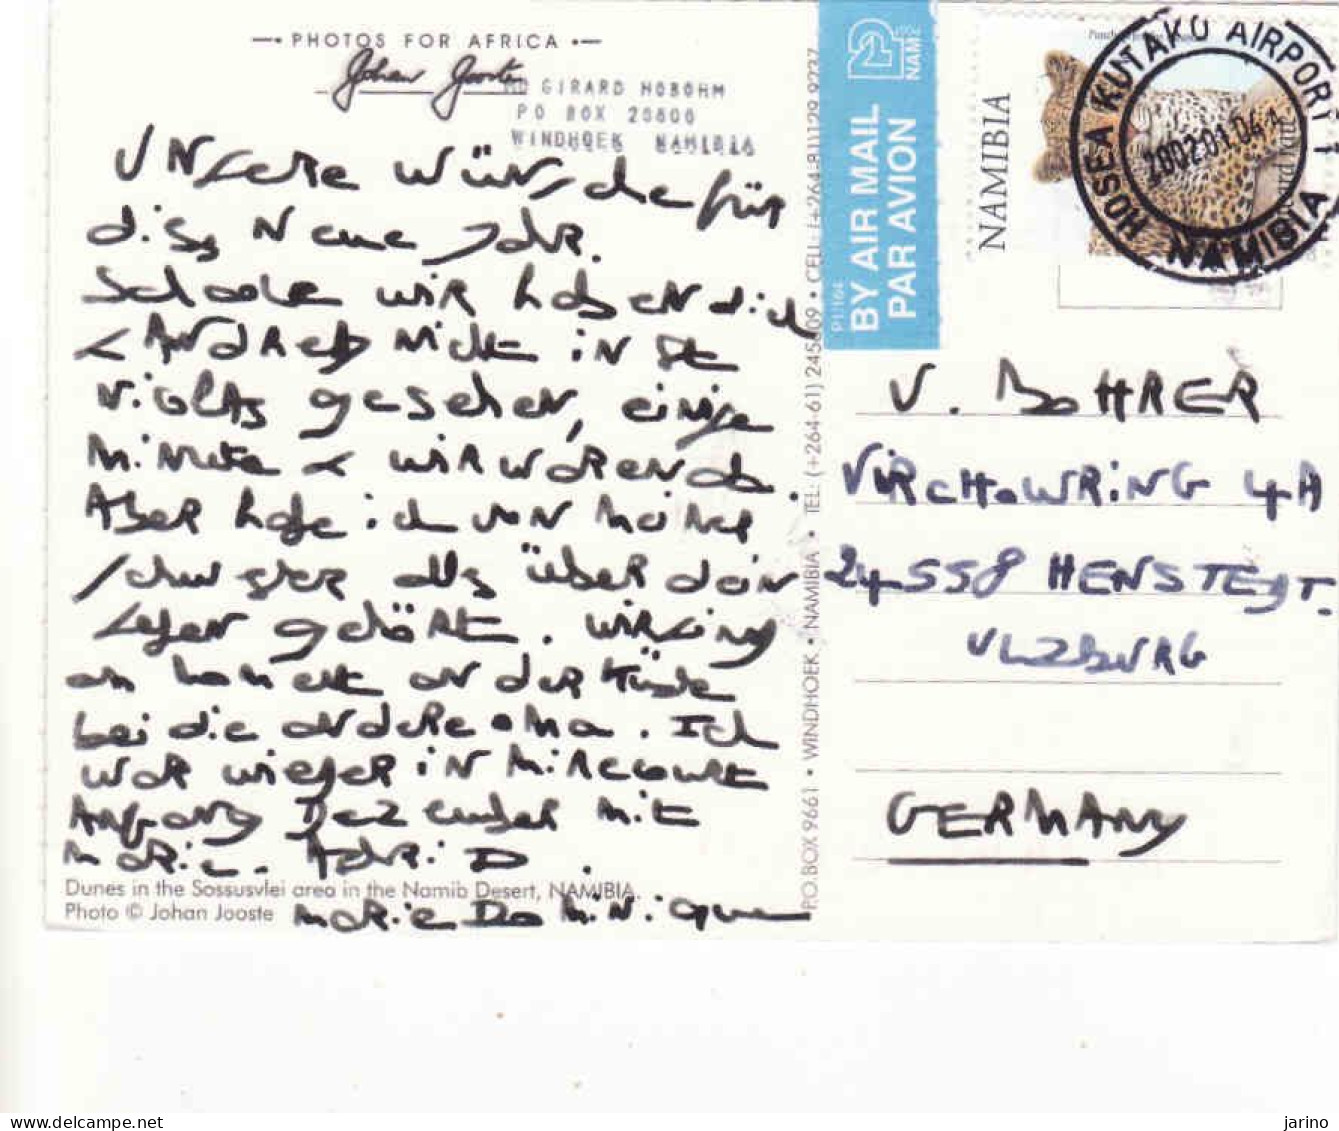 PHOTOS FOR AFRICA
Johan Jooste
MD GIRARD HOBOHM
PO BOX 20800
WINDHOEK NAMIBIA
UNSERE WÜNSCHE für
dies Neue JAHR.
Schade wir haben dich
& ANDREAS nicht in St
Niolas gesehen, einige
Minute & wir waren da.
Aber habe ich von meiner
schwester alles über dein
Leben gehört. wir sind
am moment an der Küste
bei die andere oma. Ich
war wieder in Mirecourt
Anfang Dezember mit
Marie. Adri D
Marie Dominique
Dunes in the Sossusvlei area in the Namib Desert, NAMIBIA.
Photo © Johan Jooste
P.O. BOX 9661 • WINDHOEK • NAMIBIA • TEL: (+264-61) 245809 • CELL: (+264-81) 129 9237
BY AIR MAIL
PAR AVION
P1/164
NAM
NAMIBIA
HOSEA KUTAKO AIRPORT 1
2002.01.04
NAMIBIA
V. BOHRER
VIRCHOWRING 4A
24558 HENSTEDT.
ULZBURG
GERMANY
jarino
www.delcampe.net